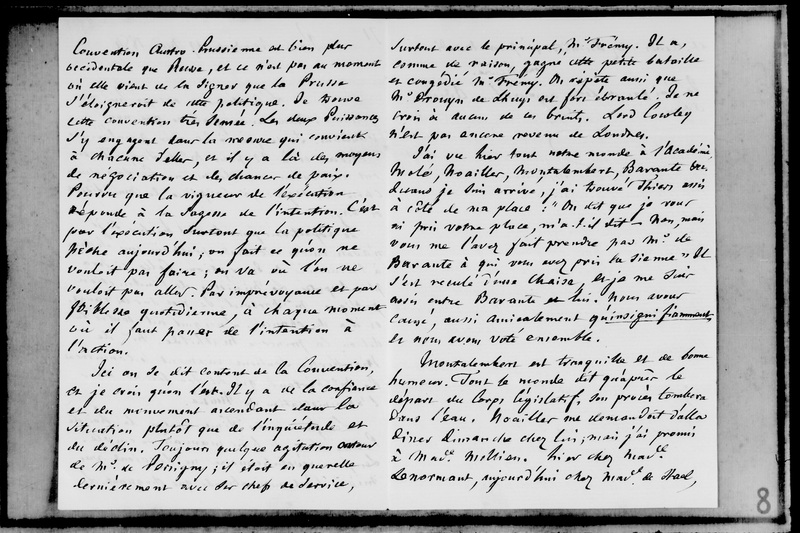 Convention Austro-Prussienne est bien plus
occidentale que Russe, et ce n'est pas au moment
où elle vient de la signer que la Prusse
s'éloigneroit de cette politique. Je trouve
cette convention très sensée. Les deux Puissances
s'y engagent dans la mesure qui convient
à chacune d'elles, et il y a là des moyens
de négociation et des chances de paix.
Pourvu que la vigueur de l'exécution
réponde à la sagesse de l'intention. C'est
par l'exécution surtout que la politique
pèche aujourd'hui ; on fait ce qu'on ne
vouloit pas faire ; on va où l'on ne
vouloit pas aller. Par imprévoyance et par
faiblesse quotidienne, à chaque moment
où il faut passer de l'intention à
l'action.
Ici on se dit content de la Convention,
et je crois qu'on l'est. Il y a de la confiance
et du mouvement ascendant dans la
situation plutôt que de l'inquiétude et
du déclin. Toujours quelque agitation autour
de Mr. de Persigny ; il était en querelle
dernièrement avec ses chefs de service,
surtout avec le principal, Mr. Frémy. Il a,
comme de raison, gagné cette petite bataille
et congédié Mr. Frémy. On répète aussi que
Mr. Drouyn de Lhuys est fort ébranlé. Je ne
crois à aucun de ces bruits. Lord Cowley
n'est pas encore revenu de Londres.
J'ai vu hier tout notre monde à l'Académie,
Molé, Noailles, Montalembert, Barante
Quand je suis arrivé, j'ai trouvé Thiers assis
à côté de ma place : "On dit que je vous
ai pris votre place, m'a-t-il dit – Non, mais
vous me l'avez fait prendre par Mr. de
Barante à qui vous avez pris la sienne" Il
s'est reculé d'une chaise et je me suis
assis entre Barante et lui. Nous avons
causé, aussi amicalement qu'insignifiamment,
et nous avons voté ensemble.
Montalembert est tranquille et de bonne
humeur. Tout le monde dit qu'après le
départ du Corps législatif, son procès tombera
dans l'eau. Noailles me demandoit d'aller
dîner Dimanche chez lui ; mais j'ai promis
à Made. Mollien. Hier chez Made.
Lenormant, aujourd'hui chez Made. de Stael,
8